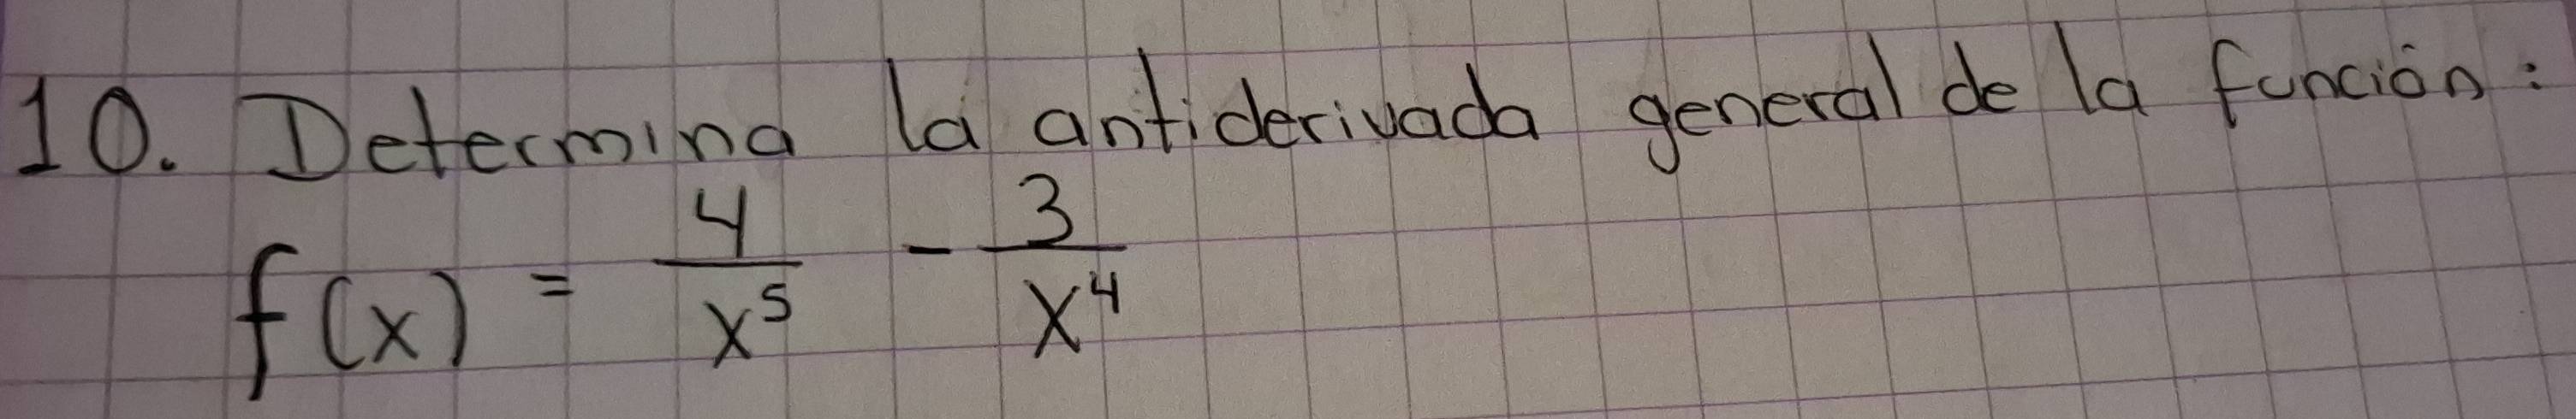 10. Determina la antiderivada general de la función:
f(x) = 4/x⁵ - 3/x⁴